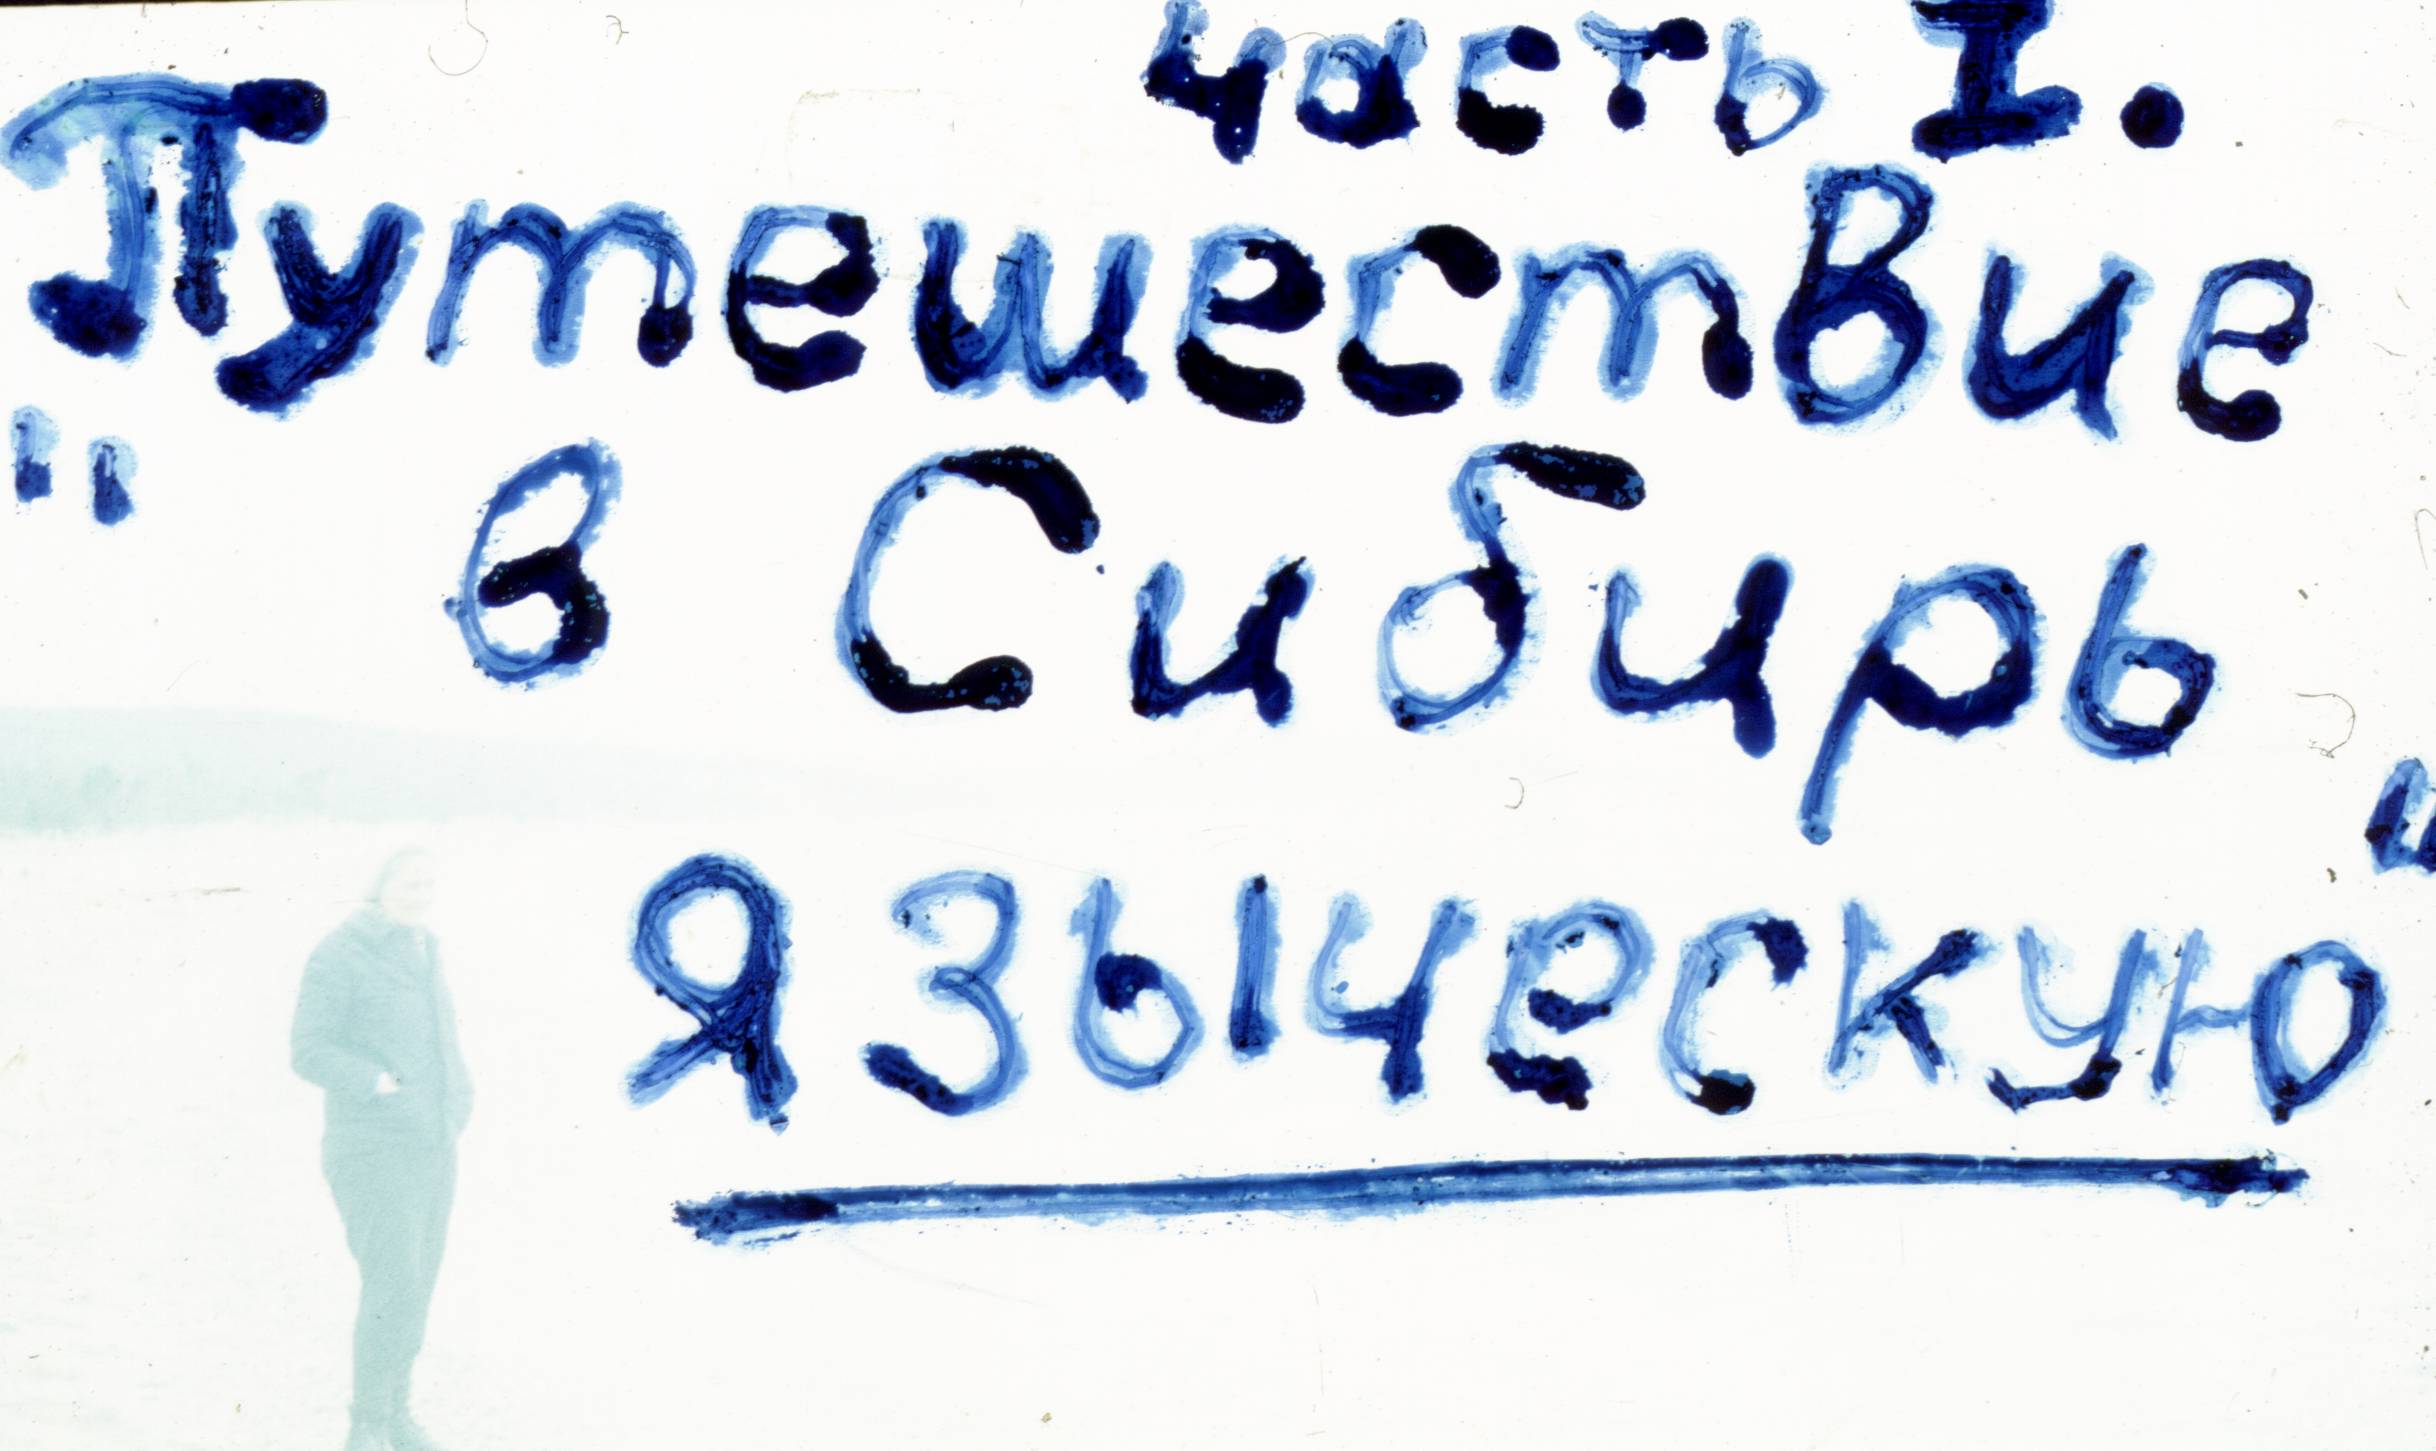 часть I.
Путешествие
" в Сибирь
языческую "